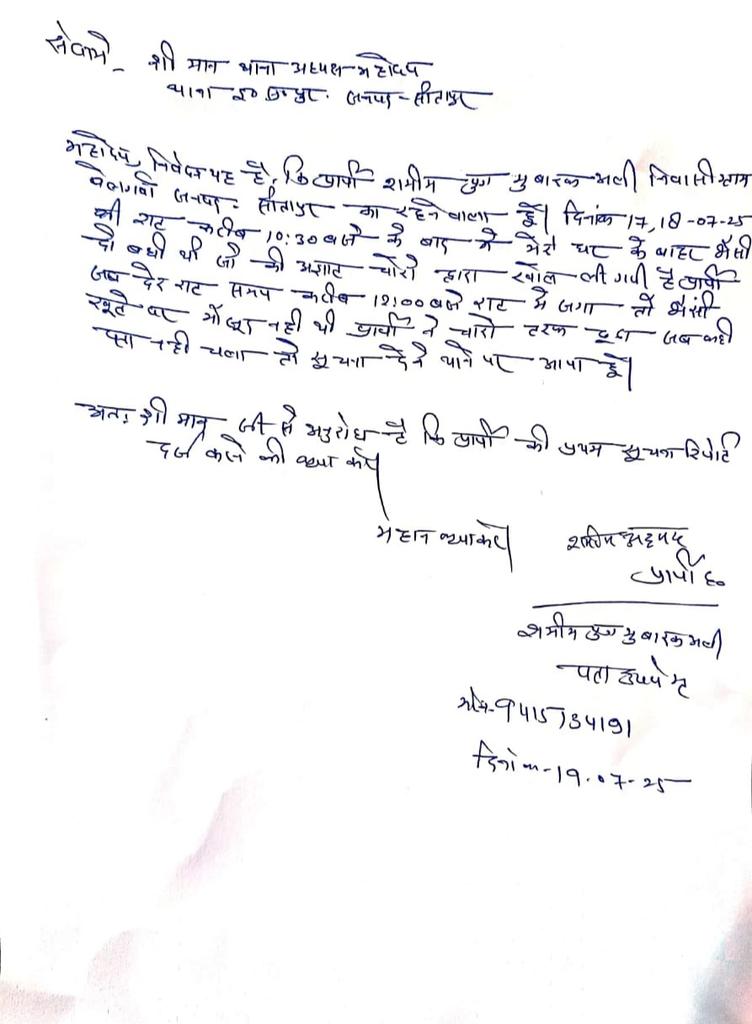 सेवामे
श्री मान थाना अध्यक्ष महोदय
थाना जनपद - सीतापुर
महोदय, निवेदन यह है, कि प्रार्थी शमीम पुत्र मुबारक अली निवासी ग्राम
जनपद - सीतापुर का रहने वाला हूँ। दिनांक 17,18-07-25
की रात करीब 10:30 बजे के बाद में मेरे घर के बाहर भैंसी
दो बधी थी जो की अज्ञात चोरो द्वारा खोल ली गयी है प्रार्थी
जब देर रात समय करीब 12:00 बजे रात में जगा तो भैंसी
खूटे पर मौजूद नही थी प्रार्थी ने चारो तरफ ढूढा जब कही
पता नही चला तो सूचना देने थाने पर आया हूँ।
अतः श्री मान जी से अनुरोध है कि प्रार्थी की प्रथम सूचना रिपोर्ट
दर्ज करने की कृपा करें।
महान कृपा करें।
शमीम अहमद
प्रार्थी ह०
शमीम पुत्र मुबारक अली
पता
मो०-9415734191
दिनांक-19.07-25